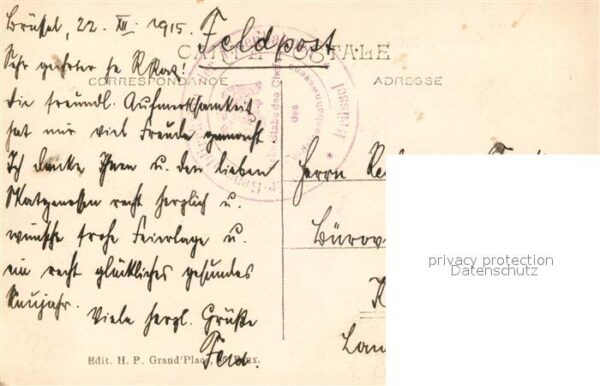 Brüssel, 22. XII. 1915.
Feldpost
CARTE POSTALE
CORRESPONDANCE
ADRESSE
Sehr geehrter H R Rat!
die freundl. Aufmerksamkeit
hat mir viel Freude gemacht
Ich danke Ihnen u. den lieben
Skatgenossen recht herzlich u.
wünsche frohe Feiertage u.
ein recht glückliches gesundes
Neujahr.
Viele herzl. Grüße
Herrn
Bürov
K
Lan
Edit. H. P. Grand'Place,
des
Brüssel
privacy protection
Datenschutz